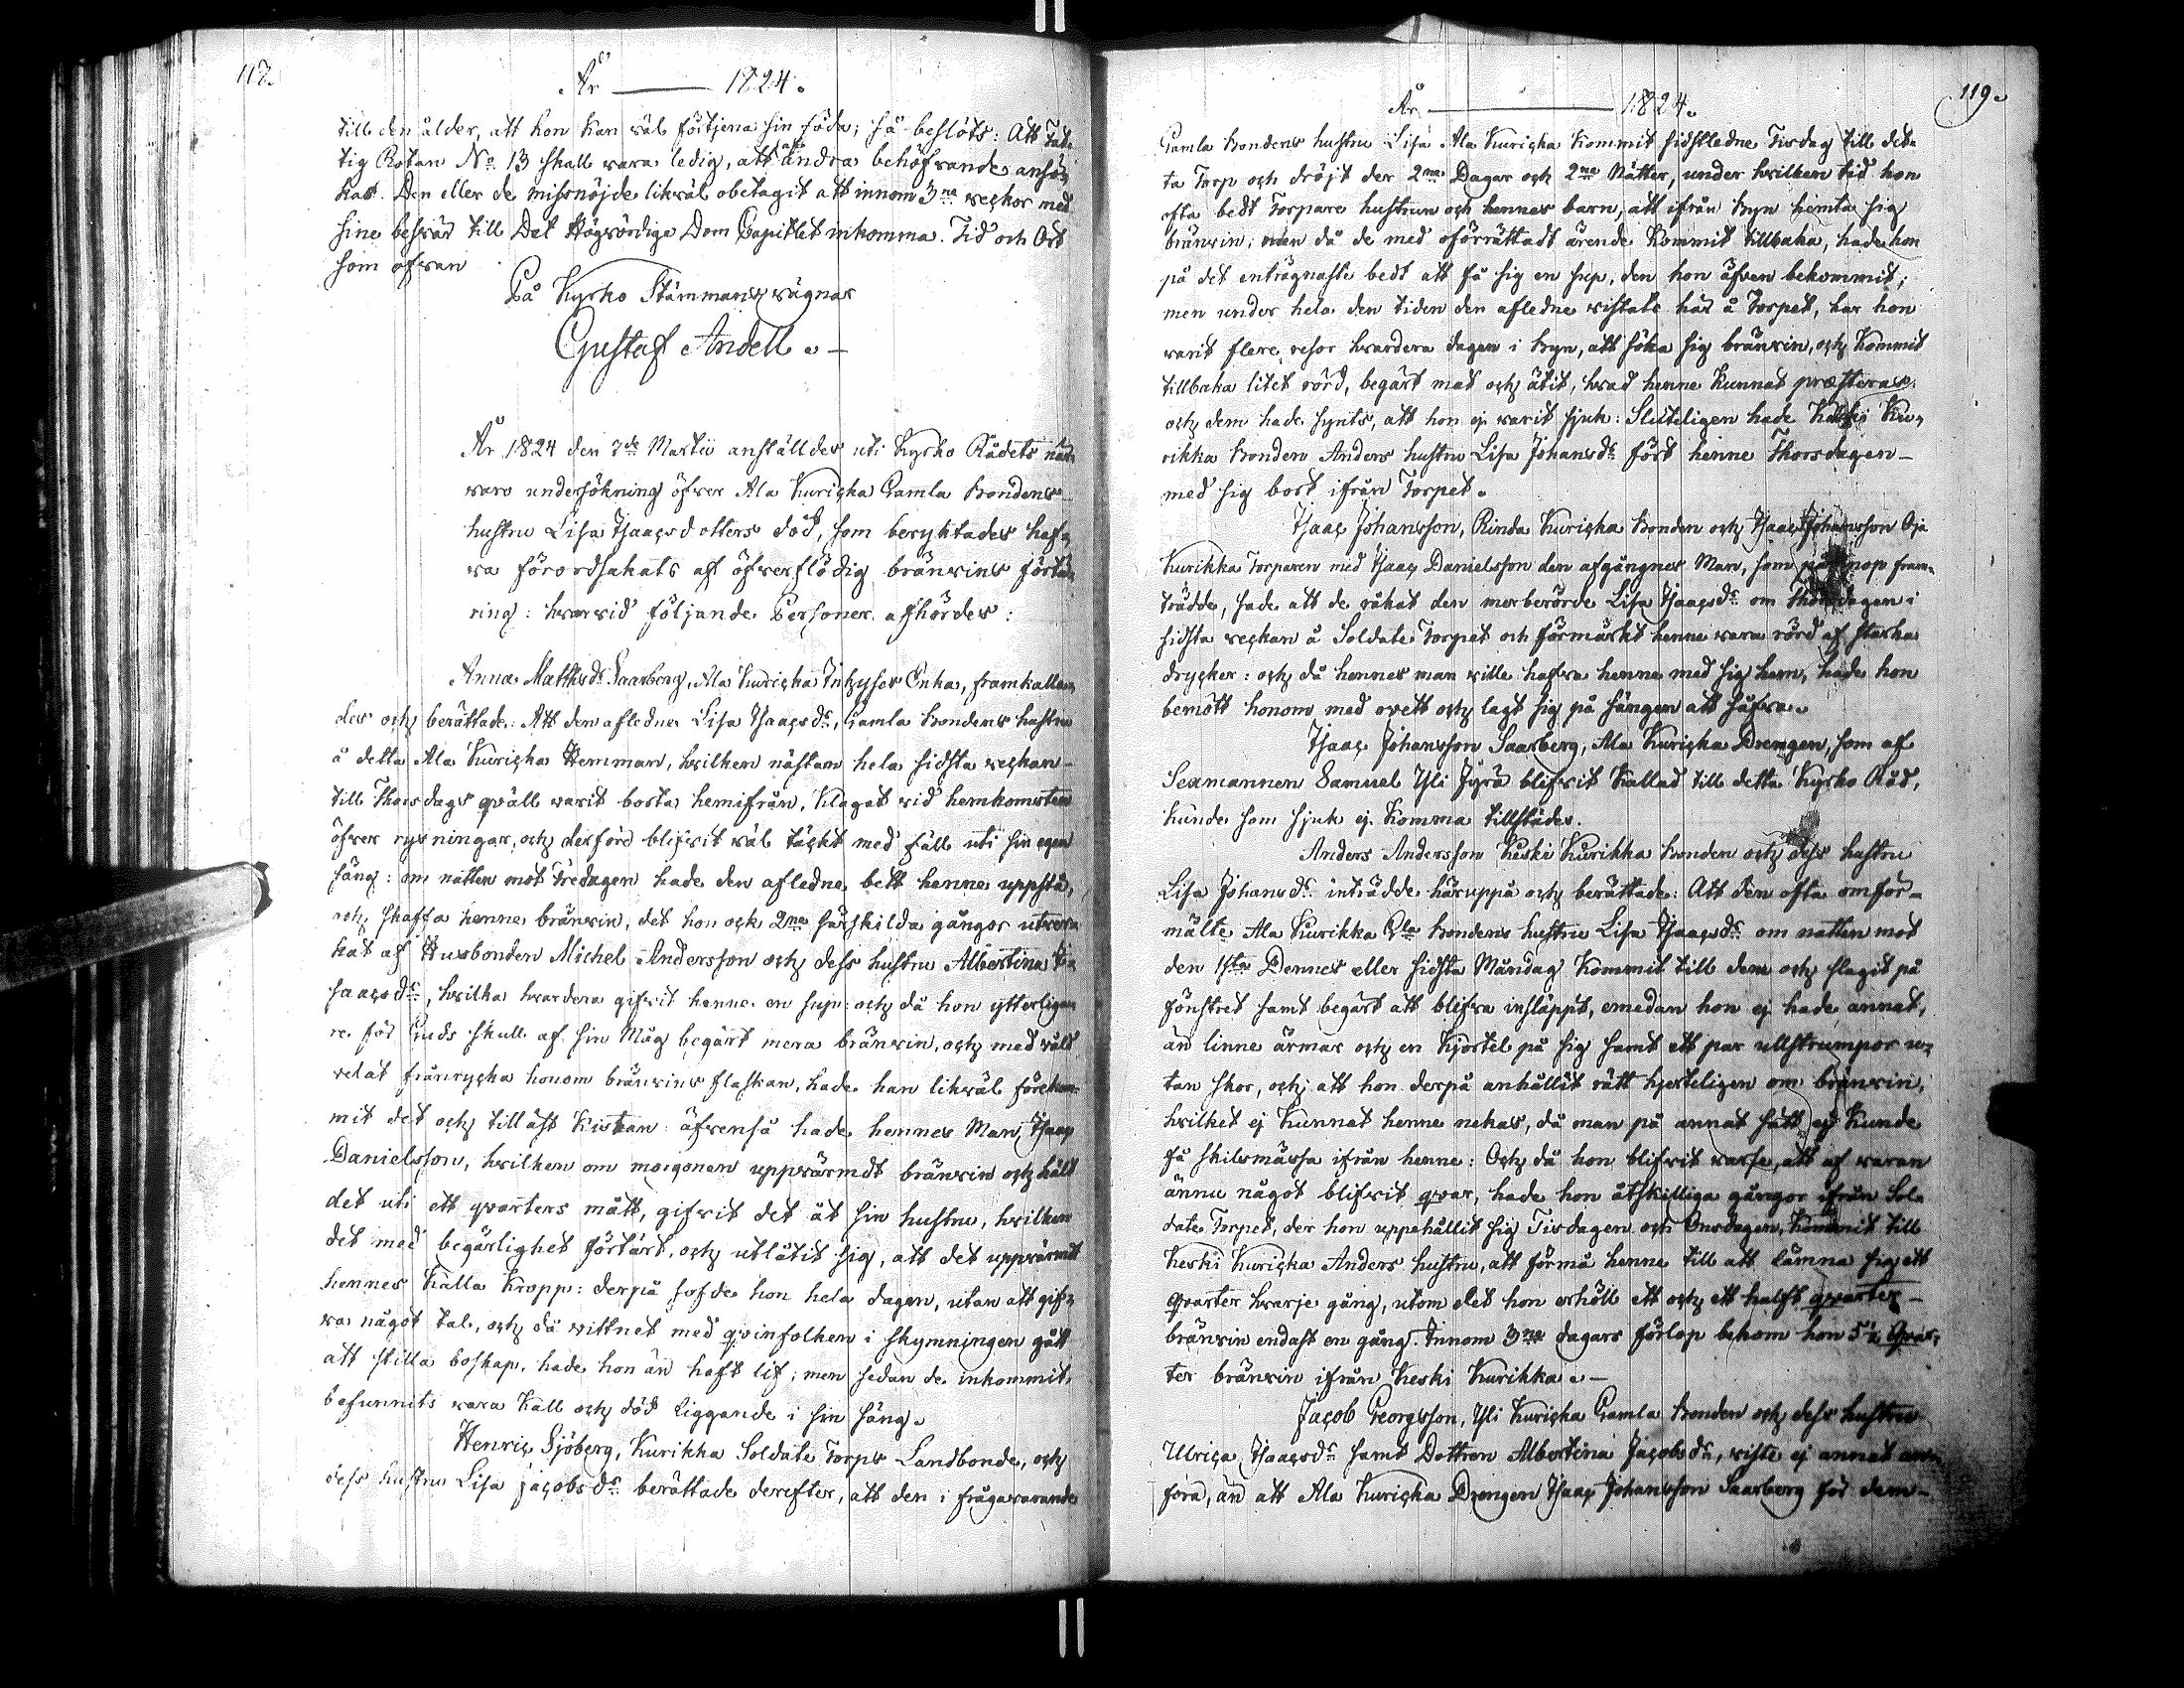 118.
År ——— 1824.
till den ålder, att hon kan väl förtjena sin föda; så beslöts: Att Fat-
tig Rotan No 13 skall vara ledig, att af andra behöfvande ansö-
kas. Den eller de missnöjde likväl obetagit att innom 3ne veckor med
sine besvär till Det Högvördige Dom Capitlet inkomma. Tid och Ort
som ofvan
På Kyrko Stämmans vägnar
Gustaf Andell.
År 1824 den 7de Martii anställdes uti Kyrko Rådets när-
varo undersökning öfver Ala Kuricka Gamla Bondens
hustru Lisa Isaacsdotters död, som beryktades haf-
va förordsakats af öfverflödig bränvins förtä-
ring: hvarvid följande Personer afhördes:
Anna Mathsdr Saarberg, Ala Kuricka Inhyses Enka, framkalla-
des och berättade: Att den afledne Lisa Isaacsdr, Gamla Bondens hustru
å detta Ala Kuricka Hemman, hvilken nästan hela sidsta veckan
till Thorsdags qväll varit borta hemifrån, klagat vid hemkomsten
öfver rysningar, och derföre blifvit väl täckt med fäll uti sin egen
säng: om natten mot Fredagen hade den afledne bett henne uppstå,
och skaffa henne bränvin, det hon ock 2ne särskilda gångor utver-
kat af Husbonden Michel Andersson och dess hustru Albertina I-
saacsdr, hvilka hvardera gifvit henne en sup: och då hon ytterliga-
re för Guds skull af sin Måg begärt mera bränvin, och med våld
velat frånrycka honom bränvins flaskan, hade han likväl förekom-
mit det och tilläst Kistan: äfvenså hade hennes Man, Isaac
Danielsson, hvilken om morgonen uppvärmdt bränvin och håldt
det uti ett qvarters mått, gifvit det åt sin hustru, hvilken
det med begärlighet förtärt, och utlåtit sig, att det uppvärmt
hennes kalla kropp: derpå sofde hon hela dagen, utan att gif-
va något tal, och då vittnet med qvinfolken i skymningen gått
att stilla boskap, hade hon än haft lif; men sedan de inkommit,
befunnits vara kall och död liggande i sin säng.
Henric Sjöberg, Kurikka Soldate Torps Landbonde, och
dess hustru Lisa Jacobsdr berättade derefter, att den i frågavarande
119.
År ——— 1824.
Gamla Bondens hustru Lisa Ala Kuricka kommit sidstledne Tisdag till det-
ta Torp och dröjt der 2ne Dagar och 2ne Nätter, under hvilken tid hon
ofta bedt Torpare hustrun och hennes barn, att ifrån Byn hemta sig
bränvin; men då de med oförrättadt ärende kommit tillbaka, hade hon
på det enträgnaste bedt att få sig en sup, den hon äfven bekommit;
men under hela den tiden den afledne vistats här å Torpet, har hon
varit flere resor hvardera dagen i Byn, att söka sig bränvin, och kommit
tillbaka litet rörd, begärt mat och ätit, hvad henne kunnat præsteras,
och dem hade synts, att hon ej varit sjuk: Sluteligen hade Keski Ku-
rikka Bonden Anders hustru Lisa Johansdr fört henne Thorsdagen
med sig bort ifrån Torpet.
Isaac Johansson, Rinda Kuricka Bonden och Isaac Johansson Oja
Kurikka Torparen med Isaac Danielsson den afgångnes Man, som fram-
trädde, sade att de råkat den merberörde Lisa Isaacsdr om Thorsdagen i
sidsta veckan å Soldate Torpet och förmärkt henne vara rörd af starka
drycker: och då hennes man ville hafva henne med sig hem, hade hon
bemött honom med ovett och lagt sig på sängen att såfva.
Isaac Johansson Saarberg, Ala Kuricka Drengen, som af
Sexmannen Samuel Yli Jyrä blifvit kallad till detta Kyrko Råd,
kunde som sjuk ej komma tillstädes.
Anders Andersson Keski Kurikka Bonden och dess hustru
Lisa Johansdr inträdde häruppå och berättade: Att den ofta omför-
mälte Ala Kurikka Gla Bondens hustru Lisa Isaacsdr om natten mot
den 1sta Dennes eller sidsta Måndag kommit till dem och slagit på
fönstret samt begärt att blifva insläppt, emedan hon ej hade annat,
än linne ärmar och en Kjortel på sig samt ett par ullstrumpor u-
tan skor, och att hon derpå anhållit rätt hjerteligen om bränvin,
hvilket ej kunnat henne nekas, då man på annat sätt ej kunde
få skilsmässa ifrån henne: Och då hon blifvit varse, att af varan
ännu något blifvit qvar, hade hon åtskilliga gångor ifrån Sol-
date Torpet, der hon uppehållit sig Tisdagen och Onsdagen, kommit till
Keski Kuricka Anders hustru, att förmå henne till att lämna sig ett
Qvarter hvarje gång, utom det hon erhöll ett och ett halft qvarter
bränvin endast en gång. Innom 3ne dagars förlop bekom hon 5½ Qvar-
ter bränvin ifrån Keski Kurikka.
Jacob Georgsson, Yli Kuricka Gamla Bonden och dess hustru
Ulrica Isaacsdr samt Dottren Albertina Jacobsdr, viste ej annat an-
föra, än att Ala Kuricka Drengen Isaac Johansson Saarberg för dem